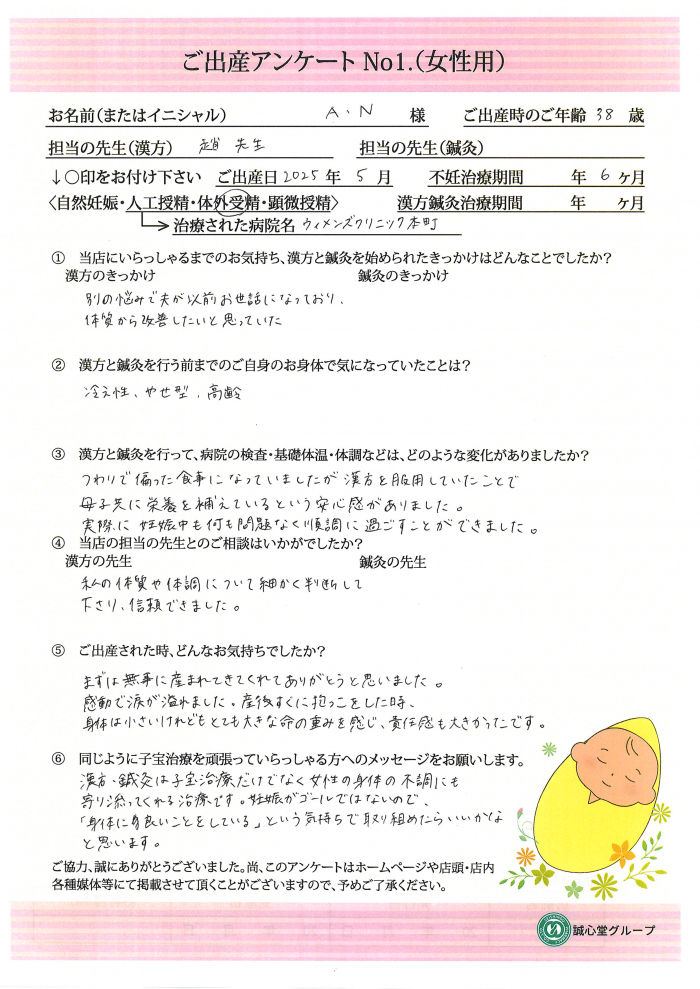 ご出産アンケート No1.(女性用)
お名前(またはイニシャル) A、N 様 ご出産時のご年齢 38 歳
担当の先生(漢方) 趙 先生 担当の先生(鍼灸)
↓○印をお付け下さい ご出産日 2025 年 5 月 不妊治療期間 年 6 ヶ月
〈自然妊娠・人工授精・体外受精・顕微授精〉 漢方鍼灸治療期間 年 ヶ月
治療された病院名 ウィメンズクリニック本町
① 当店にいらっしゃるまでのお気持ち、漢方と鍼灸を始められたきっかけはどんなことでしたか?
漢方のきっかけ 鍼灸のきっかけ
別の悩みで夫が以前お世話になっており、
体質から改善したいと思っていた
② 漢方と鍼灸を行う前までのご自身のお身体で気になっていたことは?
冷え性、やせ型、高齢
③ 漢方と鍼灸を行って、病院の検査・基礎体温・体調などは、どのような変化がありましたか?
つわりで偏った食事になっていましたが漢方を服用していたことで
母子共に栄養を補えているという安心感がありました。
実際に妊娠中も何も問題なく順調に過ごすことができました。
④ 当店の担当の先生とのご相談はいかがでしたか?
漢方の先生 鍼灸の先生
私の体質や体調について細かく判断して
下さり、信頼できました。
⑤ ご出産された時、どんなお気持ちでしたか?
まずは無事に産まれてきてくれてありがとうと思いました。
感動で涙が溢れました。産後すぐに抱っこをした時、
身体は小さいけれどもとても大きな命の重みを感じ、責任感も大きかったです。
⑥ 同じように子宝治療を頑張っていらっしゃる方へのメッセージをお願いします。
漢方、鍼灸は子宝治療だけでなく女性の身体の不調にも
寄り添ってくれる治療です。妊娠がゴールではないので、
「身体に良いことをしている」という気持ちで取り組めたらいいかな
と思います。
ご協力、誠にありがとうございました。尚、このアンケートはホームページや店頭・店内
各種媒体等にて掲載させて頂くことがございますので、予めご了承ください。
誠心堂グループ